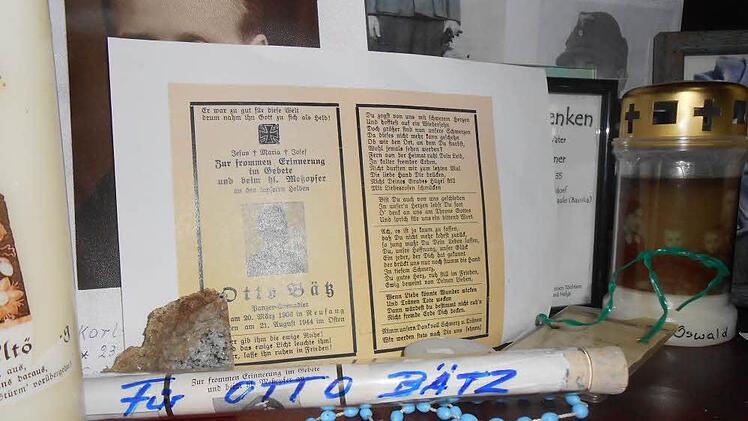 Er war zu gut für diese Welt
drum nahm ihn Gott zu sich als Held!
Jesus † Maria † Josef
Zur frommen Erinnerung
im Gebete
und beim hl. Meßopfer
an den
Helden
Otto Bätz
Panzer-Grenadier
am 20. März 1908 in Neufang
am 21. August 1944 im Osten
gib ihm die ewige Ruhe!
das ewige Licht leuchte ihm!
lasse ihn ruhen in Frieden!
Du zogst von uns mit schwerem Herzen
und hofftest auf ein Wiedersehn
Doch größer sind nun unsere Schmerzen
Da dieses nicht mehr kann geschehn.
Ob wir den Ort, an dem Du starbst,
Wohl jemals sehen werden?
Fern von der Heimat ruht Dein Leib,
In kalter fremder Erden.
Nicht durften wir zum letzten Mal
Die liebe Hand Dir drücken.
Nicht Deines Grabes Hügel still
Mit Liebesrosen schmücken
Bist Du auch von uns geschieden
In unser'n Herzen lebst Du fort
O' denk an uns am Throne Gottes
Und sprich für uns ein bittend Wort
Ach, es ist ja kaum zu fassen,
daß Du nicht mehr kehrst zurück,
so jung mußt Du Dein Leben lassen,
Du, unsre Hoffnung, unser Glück
Ein jeder, der Dich hat gekannt
der drückt uns nur noch stumm die Hand
In tiefem Schmerz.
Du gutes Herz, ruh still im Frieden,
Ewig beweint von Deinen Lieben.
Wenn Liebe könnte Wunder wirken
Und Tränen Tote wecken
Dann würdest du bestimmt nicht
Nicht fremde Erde Dich decken.
Nimm unsern Dank voll Schmerz u. Tränen
Wir werden stets nach Dir uns sehnen!
enken
ner
35
dorf
Karl
* 23
ltö
aus,
daraus,
Sturm' vorüber
Zur frommen Erinnerung
im Gebete
und beim hl. Meßopfer
Für OTTO BÄTZ
Oswald